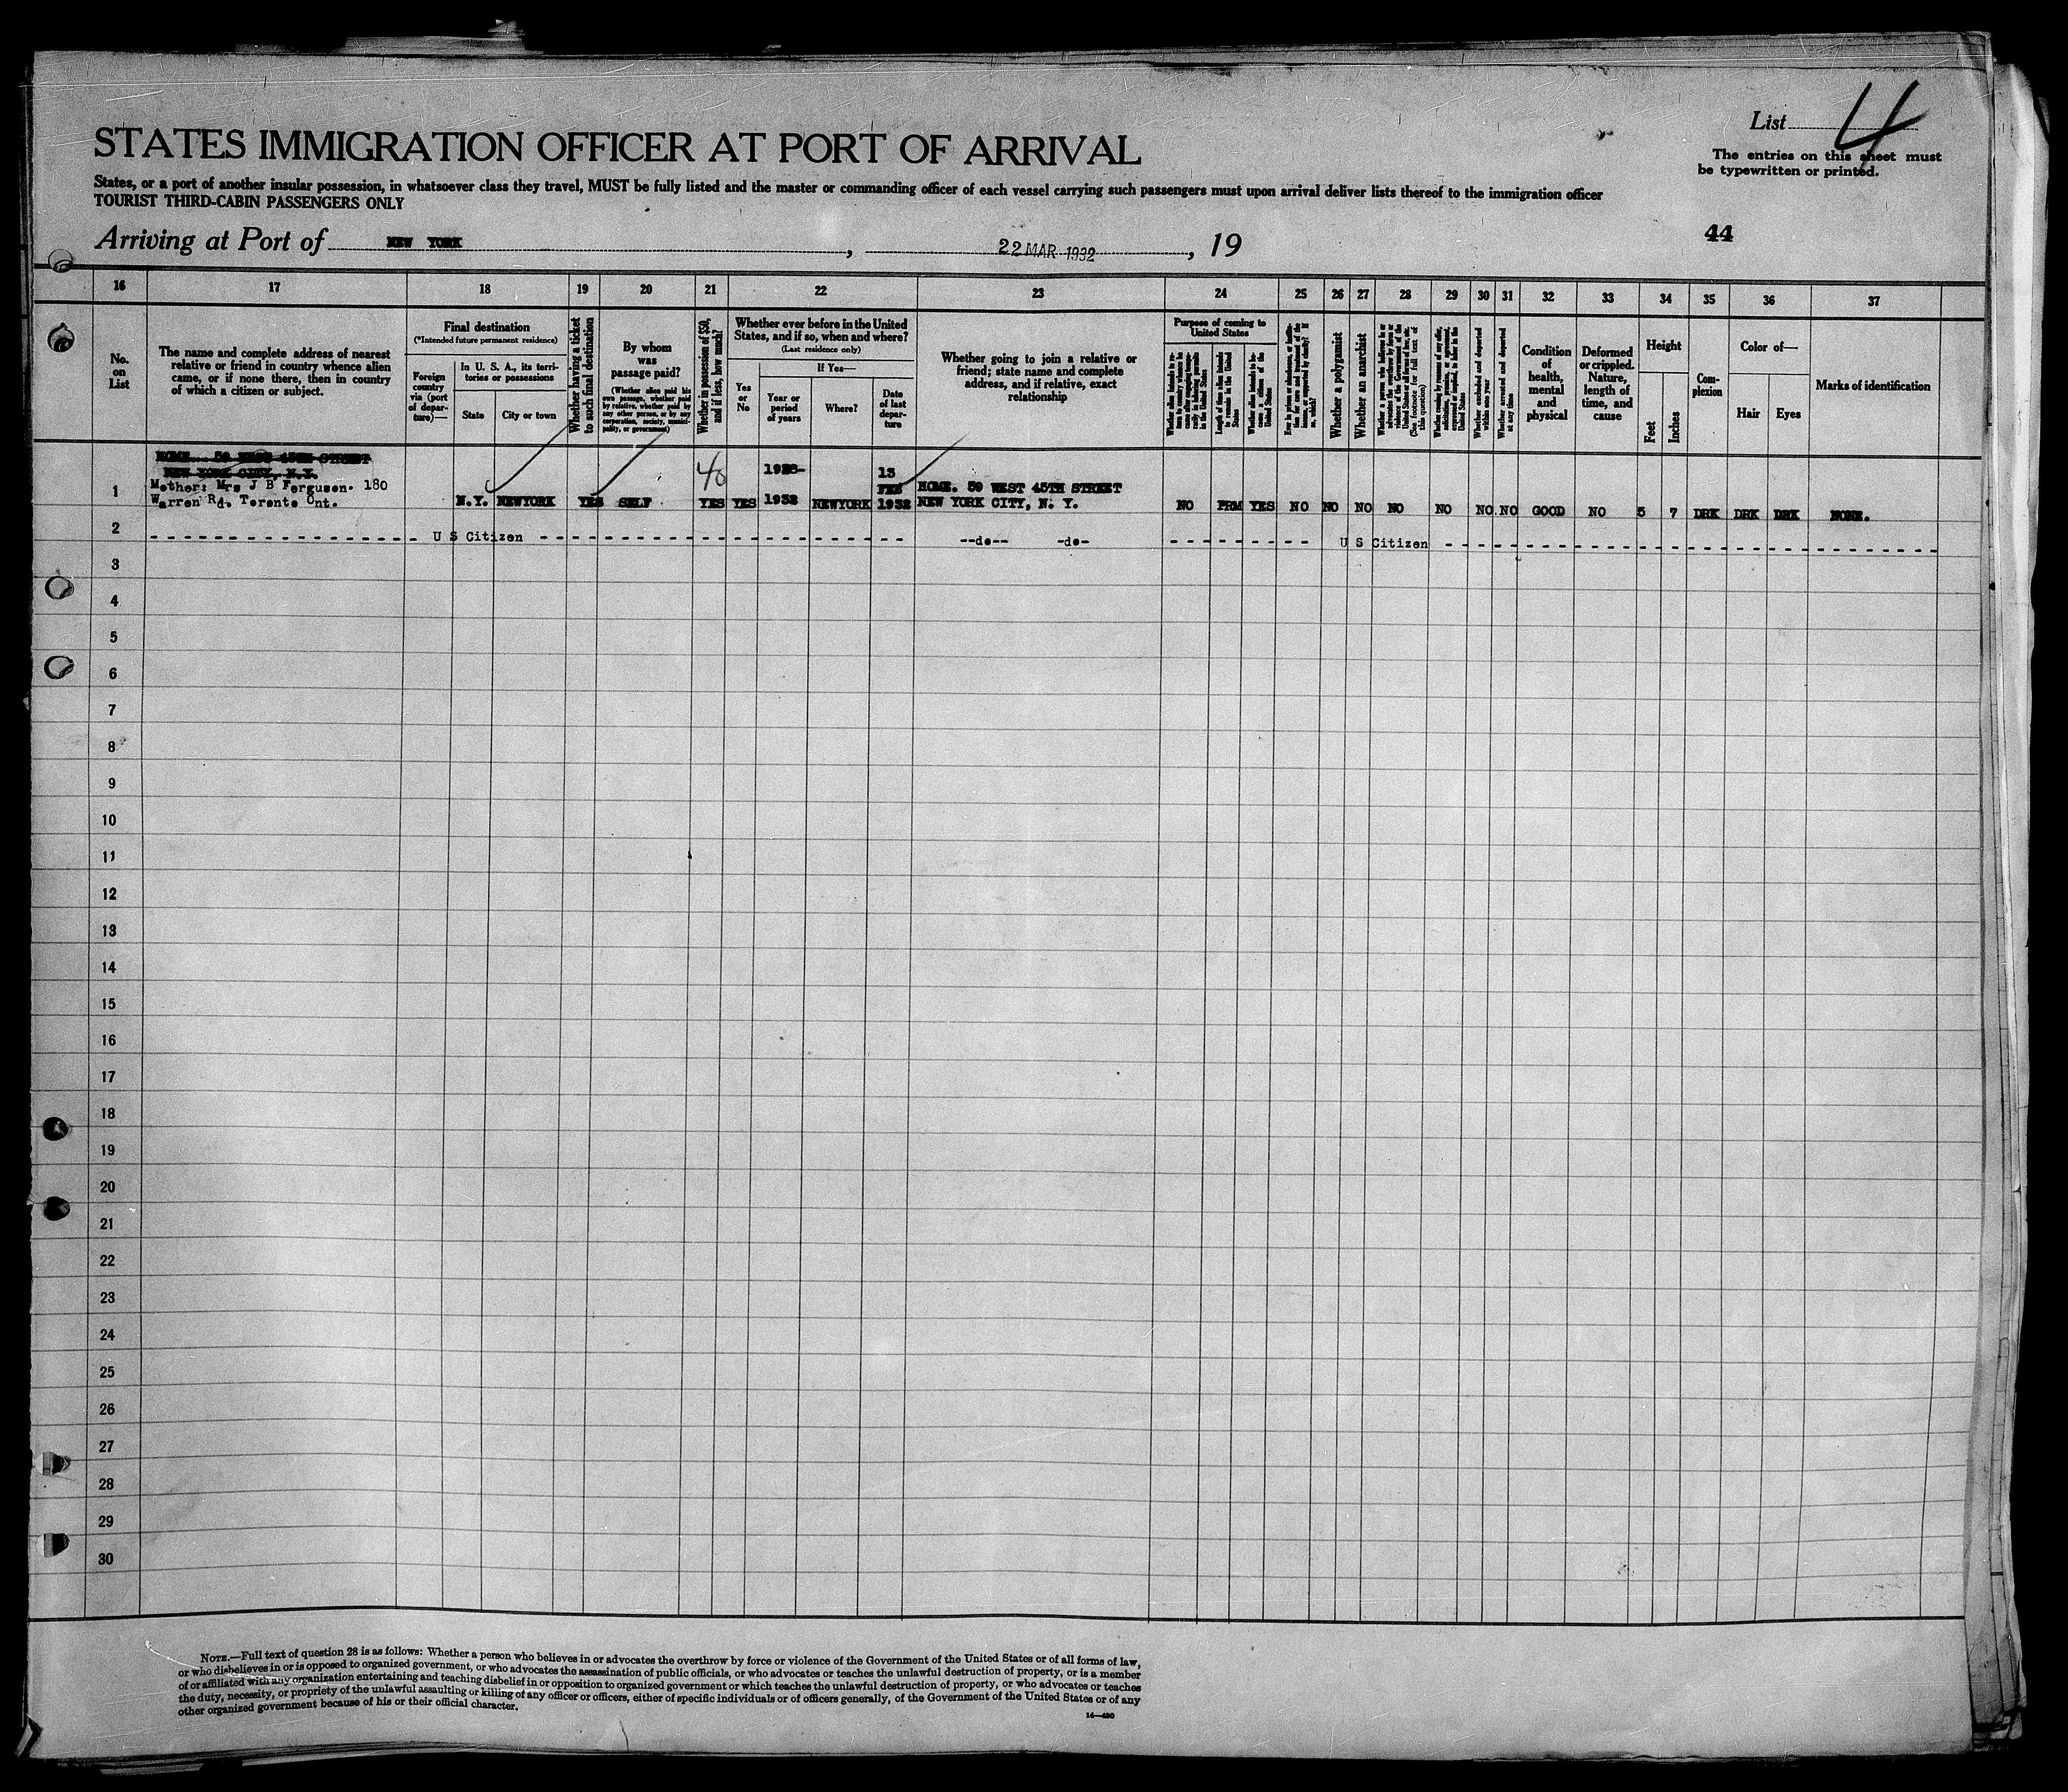 List 4
STATES IMMIGRATION OFFICER AT PORT OF ARRIVAL
The entries on this sheet must
be typewritten or printed.
States, or a port of another insular possession, in whatsoever class they travel, MUST be fully listed and the master or commanding officer of each vessel carrying such passengers must upon arrival deliver lists thereof to the immigration officer
TOURIST THIRD-CABIN PASSENGERS ONLY
Arriving at Port of NEW YORK, 22 MAR 1932, 19
44
16 17 18 19 20 21 22 23 24 25 26 27 28 29 30 31 32 33 34 35 36 37
No.
on
List
The name and complete address of nearest
relative or friend in country whence alien
came, or if none there, then in country
of which a citizen or subject.
Final destination
(*Intended future permanent residence)
Foreign
country
via (port
of depar-
ture)—
In U. S. A., its terri-
tories or possessions
State
City or town
Whether having a ticket
to such final destination
By whom
was
passage paid?
(Whether alien paid his
own passage, whether paid
by relative, whether paid by
any other person, or by any
corporation, society, munici-
pality, or government)
Whether in possession of $50,
and if less, how much?
Whether ever before in the United
States, and if so, when and where?
(Last residence only)
Yes
or
No
If Yes—
Year or
period
of years
Where?
Date
of last
depar-
ture
Whether going to join a relative or
friend; state name and complete
address, and if relative, exact
relationship
Purpose of coming to
United States
Whether a polygamist
Whether an anarchist
(See footnote for full text of
this question)
Whether excluded and deported
within one year
Whether arrested and deported
at any time
Condition
of
health,
mental
and
physical
Deformed
or crippled.
Nature,
length of
time, and
cause
Height
Feet
Inches
Com-
plexion
Color of—
Hair
Eyes
Marks of identification
HOME... 59 WEST 45TH STREET
NEW YORK CITY, N.Y.
Mother: Mrs J B Ferguson. 180
Warren Rd. Toronto Ont.
1 N.Y. NEWYORK YES SELF 40 YES YES 1928-
1932 NEWYORK 13
FEB
1932 HOME. 59 WEST 45TH STREET
NEW YORK CITY, N. Y. NO PRM YES NO NO NO NO NO NO NO GOOD NO 5 7 DRK DRK DRK NONE.
2 U S Citizen --do-- -do- U S Citizen
3
4
5
6
7
8
9
10
11
12
13
14
15
16
17
18
19
20
21
22
23
24
25
26
27
28
29
30
NOTE.—Full text of question 28 is as follows: Whether a person who believes in or advocates the overthrow by force or violence of the Government of the United States or of all forms of law,
or who disbelieves in or is opposed to organized government, or who advocates the assassination of public officials, or who advocates or teaches the unlawful destruction of property, or is a member
of or affiliated with any organization entertaining and teaching disbelief in or opposition to organized government or which teaches the unlawful destruction of property, or who advocates or teaches
the duty, necessity, or propriety of the unlawful assaulting or killing of any officer or officers, either of specific individuals or of officers generally, of the Government of the United States or of any
other organized government because of his or their official character.
14—430